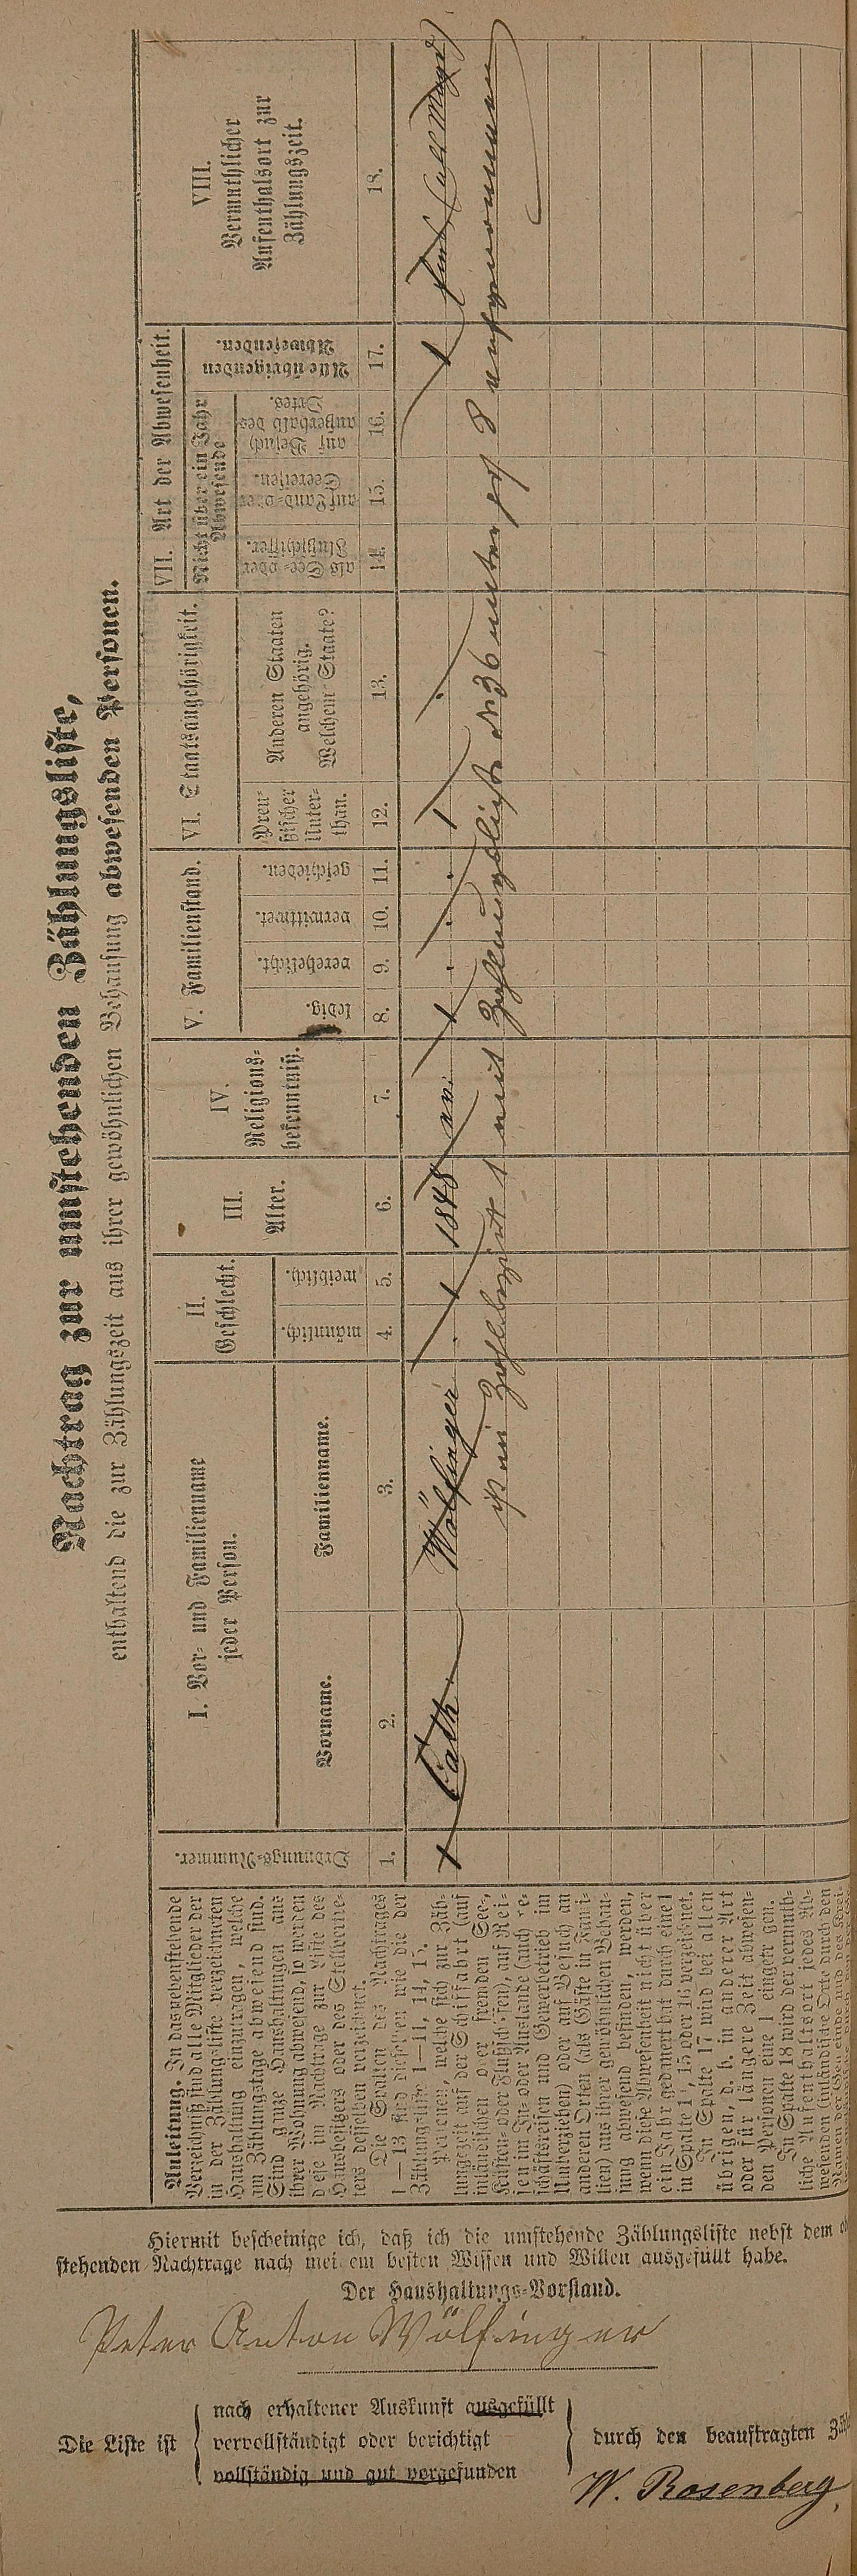 Nachtrag zur umstehenden Zählungsliste,
enthaltend die zur Zählungszeit aus ihrer gewöhnlichen Behausung abwesenden Personen.
Anleitung. In das nebenstehende
Verzeichniß sind alle Mitglieder der
in der Zählungsliste verzeichneten
Haushaltung einzutragen, welche
am Zählungstage abwesend sind.
Sind ganze Haushaltungen aus
ihrer Wohnung abwesend, so werden
diese im Nachtrage zur Liste des
Hausbesitzers oder des Stellvertre-
ters desselben verzeichnet.
Die Spalten des Nachtrages
1—13 sind dieselben wie die der
Zählungsliste 1—11, 14, 15.
Personen, welche sich zur Zäh-
lungszeit auf der Schiffahrt (auf
inländischen oder fremden See-,
Küsten- oder Flußschiffen), auf Rei-
sen im In- oder Auslande (auch Ge-
schäftsreisen und Gewerbetrieb im
Umherziehen) oder auf Besuch an
anderen Orten (als Gäste in Fami-
lien) aus ihrer gewöhnlichen Behau-
sung abwesend befinden, werden,
wenn diese Abwesenheit nicht über
ein Jahr gedauert hat durch eine 1
in Spalte 14, 15 oder 16 verzeichnet.
In Spalte 17 wird bei allen
übrigen, d. h. in anderer Art
oder für längere Zeit abwesen-
den Personen eine 1 eingetragen.
In Spalte 18 wird der vermuth-
liche Aufenthaltsort jedes Ab-
wesenden (inländische Orte durch den
Namen der Gemeinde und des Krei-
Ordnungs-Nummer.
I. Vor- und Familienname
jeder Person.
Vorname.
Familienname.
II.
Geschlecht.
männlich.
weiblich.
III.
Alter.
IV.
Religions-
bekenntniß.
V. Familienstand.
ledig.
verehelicht.
verwittwet.
geschieden.
VI. Staatsangehörigkeit.
Preu-
ßischer
Unter-
than.
Anderen Staaten
angehörig.
Welchem Staate?
VII. Art der Abwesenheit.
Nicht über ein Jahr
Abwesende
als See- oder
Flußschiffer.
auf Land- oder
Seereisen.
auf Besuch
außerhalb des
Ortes.
Alle übrigen
Abwesenden.
VIII.
Vermuthlicher
Aufenthaltsort zur
Zählungszeit.
1. 2. 3. 4. 5. 6. 7. 8. 9. 10. 11. 12. 13. 14. 15. 16. 17. 18.
1 Cath. Wölfinger 1 1848 ev. 1 1 1
ist im Zählbezirk 1 mit Zählungsliste No 36 unter No 8 aufgenommen
Hiermit bescheinige ich, daß ich die umstehende Zählungsliste nebst dem
stehenden Nachtrage nach meinem besten Wissen und Willen ausgefüllt habe.
Der Haushaltungs-Vorstand.
Peter Anton Wölfinger
Die Liste ist
nach erhaltener Auskunft ausgefüllt
vervollständigt oder berichtigt
vollständig und gut vorgefunden
durch den beauftragten
W. Rosenberg